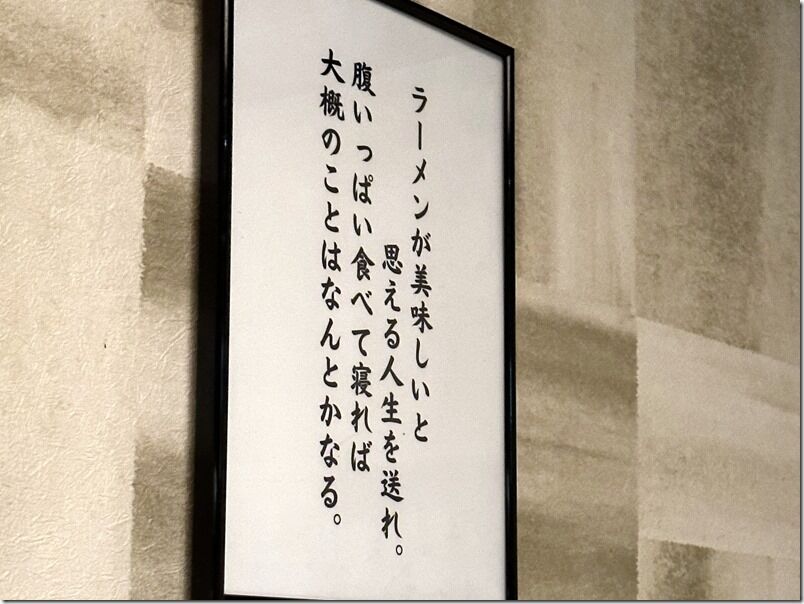 ラーメンが美味しいと
思える人生を送れ。
腹いっぱい食べて寝れば
大概のことはなんとかなる。